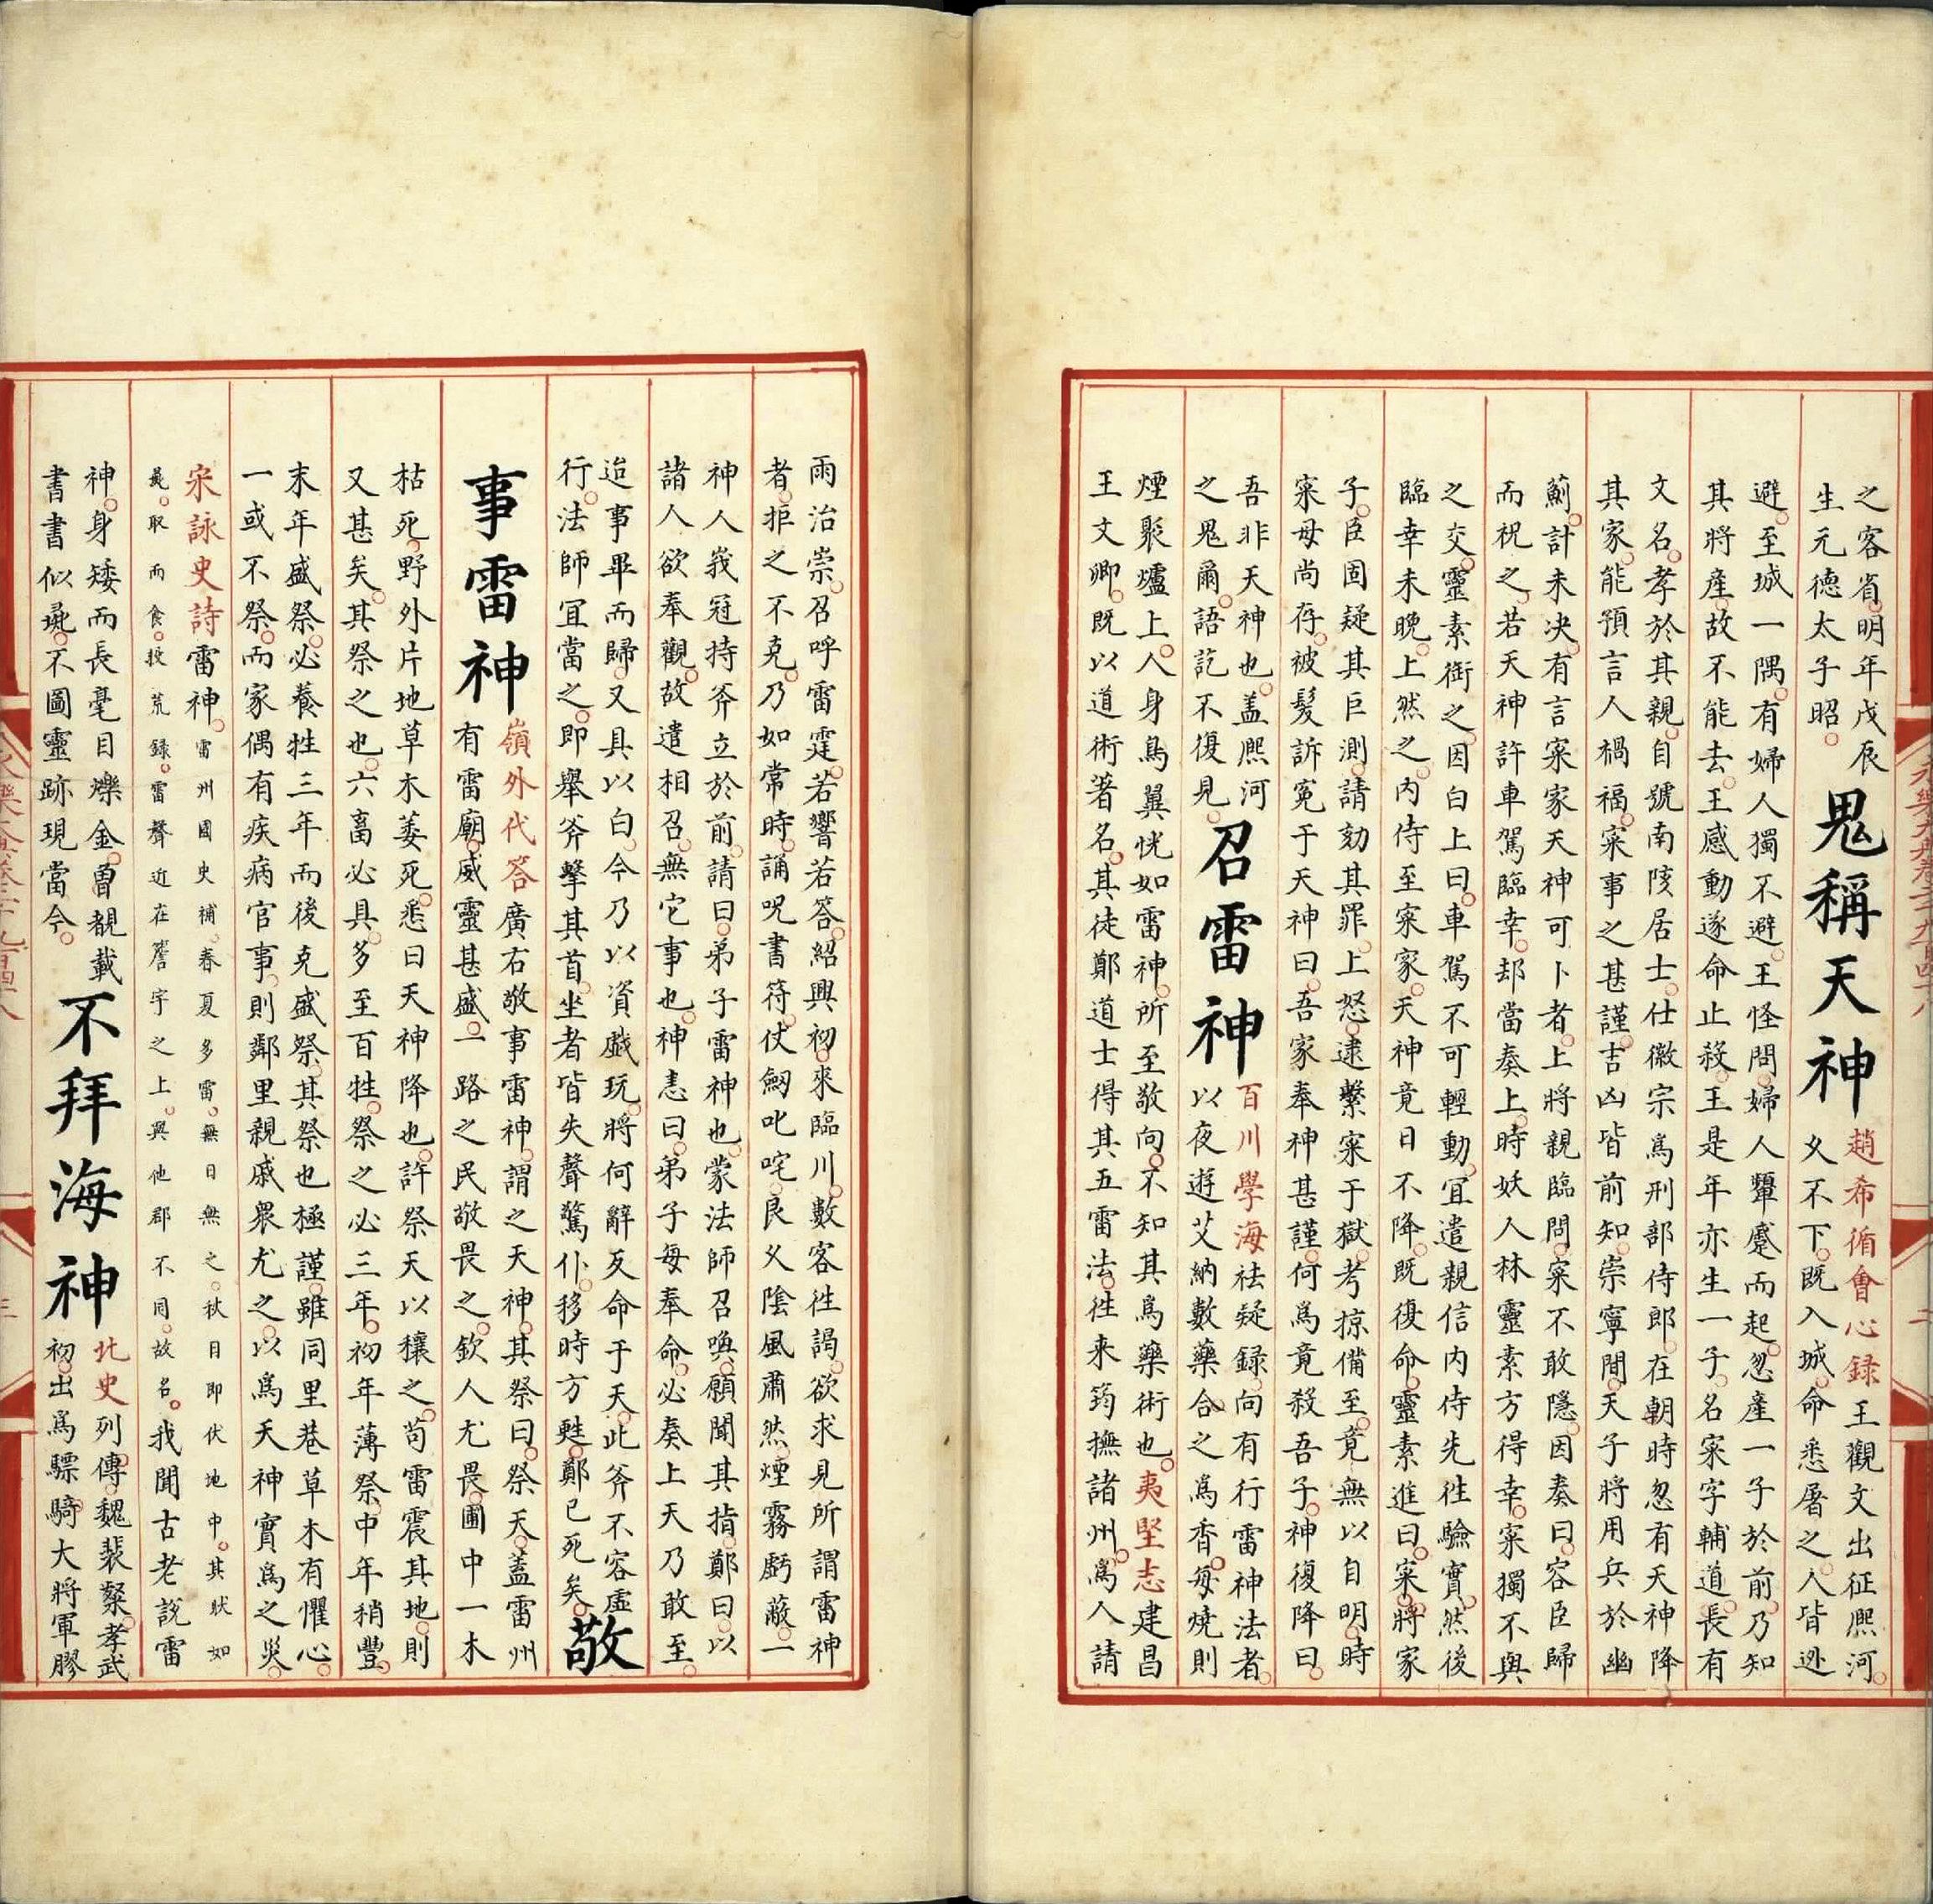 永樂大典卷二千九百四十八
二
之客省明年戊辰
生元德太子昭
鬼稱天神
趙希循會心録王觀文出征熙河
久不下既入城命悉屠之人皆逃
避至城一隅有婦人獨不避王怪問婦人顰蹙而起忽產一子於前乃知
其將產故不能去王感動遂命止殺王是年亦生一子名寀字輔道長有
文名孝於其親自號南陔居士仕徽宗爲刑部侍郎在朝時忽有天神降
其家能預言人禍福寀事之甚謹吉凶皆前知崇寧間天子將用兵於幽
薊計未决有言寀家天神可卜者上將親臨問寀不敢隱因奏曰容臣歸
而祝之若天神許車駕臨幸却當奏上時妖人林靈素方得幸寀獨不與
之交靈素銜之因白上曰車駕不可輕動宜遣親信内侍先徃驗實然後
臨幸未晚上然之内侍至寀家天神竟日不降既復命靈素進曰寀將家
子臣固疑其叵測請劾其罪上怒逮繫寀于獄考掠備至竟無以自明時
寀母尚存被髮訴寃于天神曰吾家奉神甚謹何爲竟殺吾子神復降曰
吾非天神也盖熙河
之鬼爾語訖不復見
召雷神
百川學海祛疑録向有行雷神法者
以夜遊艾納數藥合之爲香每燒則
煙聚爐上人身鳥翼恍如雷神所至敬向不知其爲藥術也夷堅志建昌
王文卿既以道術著名其徒鄭道士得其五雷法徃来筠撫諸州爲人請
雨治祟召呼雷霆若響若答紹興初來臨川數客徃謁欲求見所謂雷神
者拒之不克乃如常時誦呪書符仗劒叱咤良乆陰風肅然煙霧虧蔽一
神人峩冠持斧立於前請曰弟子雷神也蒙法師召喚願聞其指鄭曰以
諸人欲奉觀故遣相召無它事也神恚曰弟子每奉命必奏上天乃敢至
迨事畢而歸又具以白今乃以資戯玩將何辭反命于天此斧不容虚
行法師宜當之即舉斧擊其首坐者皆失聲驚仆移時方甦鄭已死矣
敬
事雷神
嶺外代答廣右敬事雷神謂之天神其祭曰祭天蓋雷州
有雷廟威靈甚盛一路之民敬畏之欽人尤畏圃中一木
枯死野外片地草木萎死悉曰天神降也許祭天以禳之苟雷震其地則
又甚矣其祭之也六畜必具多至百牲祭之必三年初年薄祭中年稍豐
末年盛祭必養牲三年而後克盛祭其祭也極謹雖同里巷草木有懼心
一或不祭而家偶有疾病官事則鄰里親戚衆尤之以爲天神實爲之災
宋詠史詩雷神雷州國史補春夏多雷無日無之秋日即伏地中其狀如
彘取而食投荒録雷聲近在簷宇之上與他郡不同故名我聞古老説雷
神身矮而長毫目爍金曽覩載
書書似彘不圖靈跡現當今
不拜海神
北史列傳魏裴粲孝武
初出爲驃騎大將軍膠
三